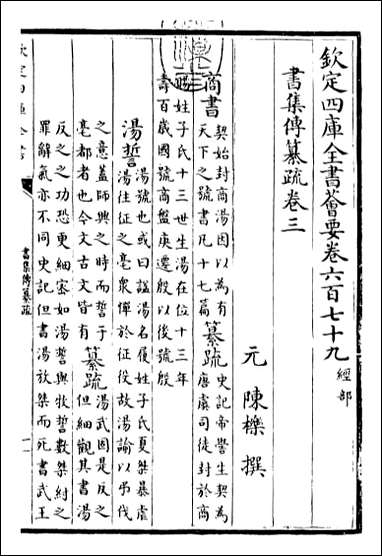 欽定四庫全書薈要卷六百七十九 經部
書集傳纂疏卷三
元 陳櫟 撰
商書 契始封商湯因以為有
天下之號書凡十七篇
纂疏 史記帝嚳生契為
唐虞司徒封於商
賜姓子氏十三世生湯在位十三年
壽百歲國號商盤庚遷殷以後號殷
湯誓 湯號也或曰諡湯名履姓子氏夏桀暴虐
湯往征之亳衆憚於征役故湯諭以弔伐
之意蓋師興之時而誓于
亳都者也今文古文皆有
纂疏 湯武固是反之
但細觀其書湯
反之之功恐更細密如湯誓與牧誓數桀紂之
罪辭氣亦不同史記但書湯放桀而死書武王
欽定四庫全書
書集傳纂疏
一